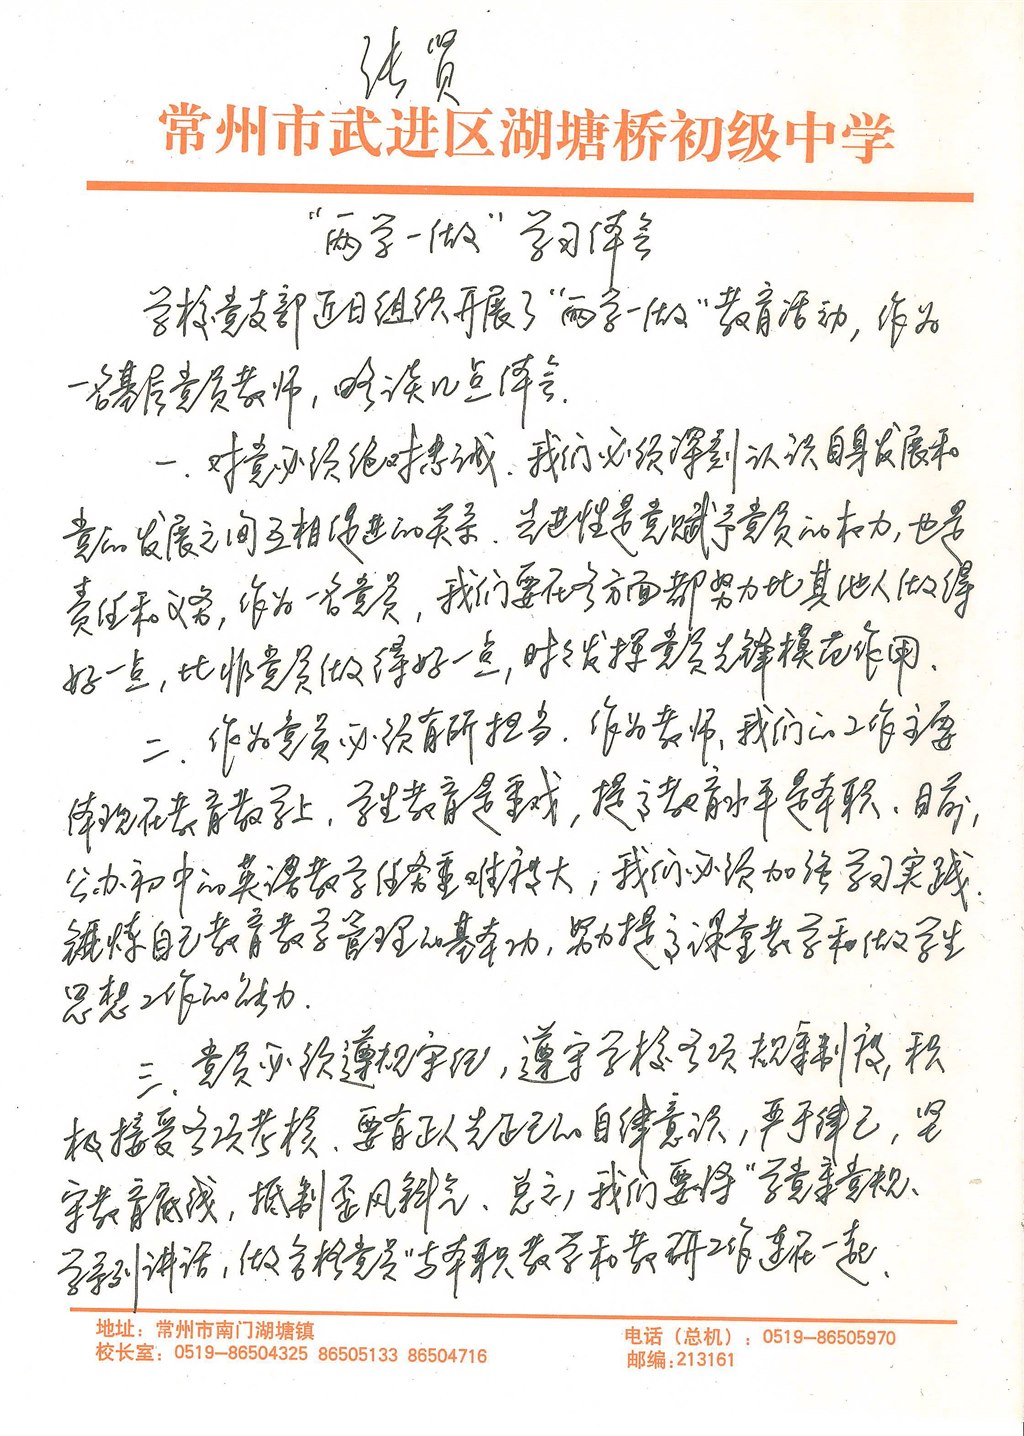 张贤
常州市武进区湖塘桥初级中学
“两学一做”学习体会
学校党支部近日组织开展了“两学一做”教育活动，作为
一名基层党员教师，略谈几点体会.
一. 对党必须绝对忠诚. 我们必须深刻认识自身发展和
党的发展之间互相促进的关系. 先进性是党赋予党员的权力，也是
责任和义务，作为一名党员，我们要在各方面都努力比其他人做得
好一点，比非党员做得好一点，时时发挥党员先锋模范作用.
二. 作为党员必须有所担当. 作为教师，我们的工作主要
体现在教育教学上. 学生教育是重头戏，提高教育水平是本职. 目前，
公办初中的英语教学任务重难度大，我们必须加强学习实践.
锤炼自己教育教学管理的基本功，努力提高课堂教学和做学生
思想工作的能力.
三. 党员必须遵规守纪，遵守学校各项规章制度，积
极接受各项考核. 要有正人先正己的自律意识，严于律己，坚
守教育底线，抵制歪风斜气. 总之，我们要将“学党章党规、
学系列讲话，做合格党员”与本职教学和教研工作连在一起.
地址：常州市南门湖塘镇
电话（总机）：0519—86505970
校长室：0519—86504325 86505133 86504716
邮编:213161